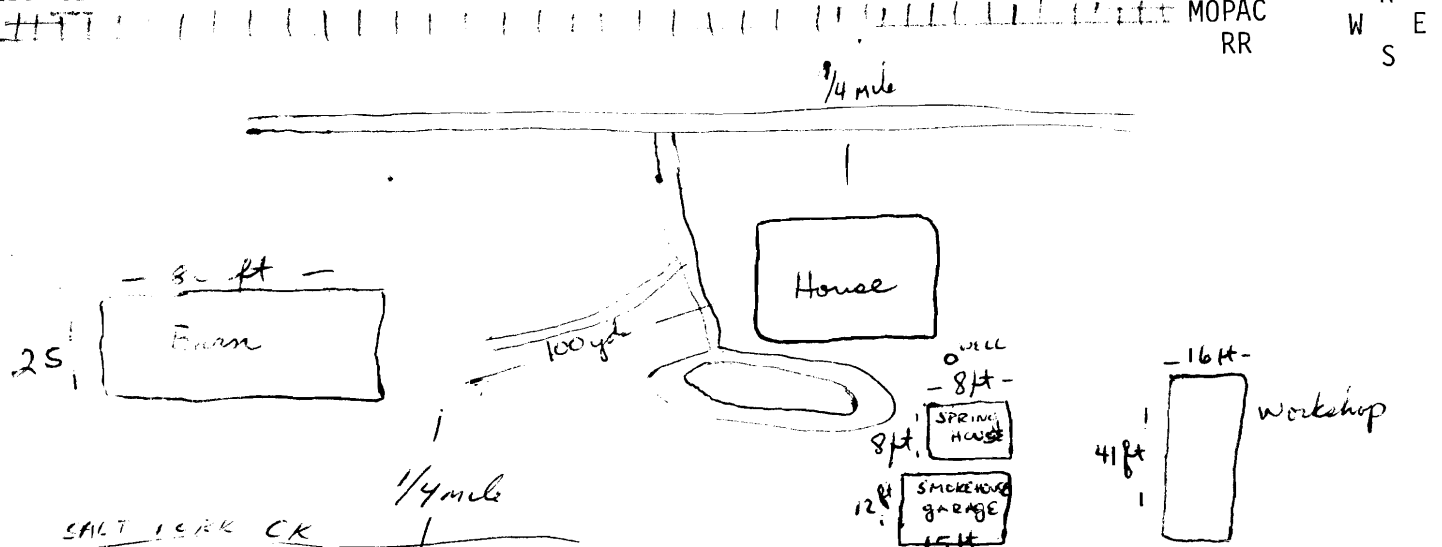 MOPAC
RR
W E
S
1/4 mile
House
- ft -
Barn
25
100 yds
WELL
- 8ft -
SPRING
HOUSE
8ft
12ft
SMOKEHOUSE
GARAGE
15ft
- 16ft -
41ft
Workshop
1/4 mile
SALT FORK CK